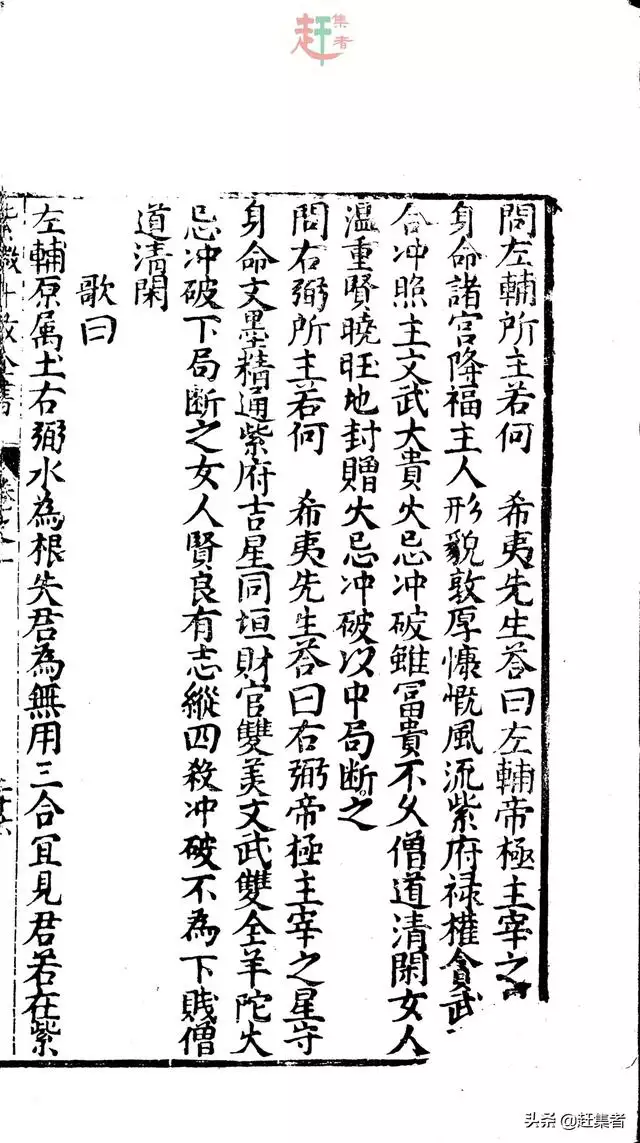 赶集者
問左輔所主若何 希夷先生荅曰左輔帝極主宰之
身命諸宮降福主人形貌敦厚慷慨風流紫府禄權貪武
合冲照主文武大貴火忌冲破雖富貴不久僧道清閑女人
温重賢曉旺地封贈火忌冲破以中局断之
問右弼所主若何 希夷先生荅曰右弼帝極主宰之星守
身命文墨精通紫府吉星同垣財官雙美文武雙全羊陀火
忌冲破下局断之女人賢良有志縱四殺冲破不為下賤僧
道清閑
歌曰
左輔原属土右弼水為根失君為無用三合冝見君若在紫
紫微斗数全書
头条 @赶集者